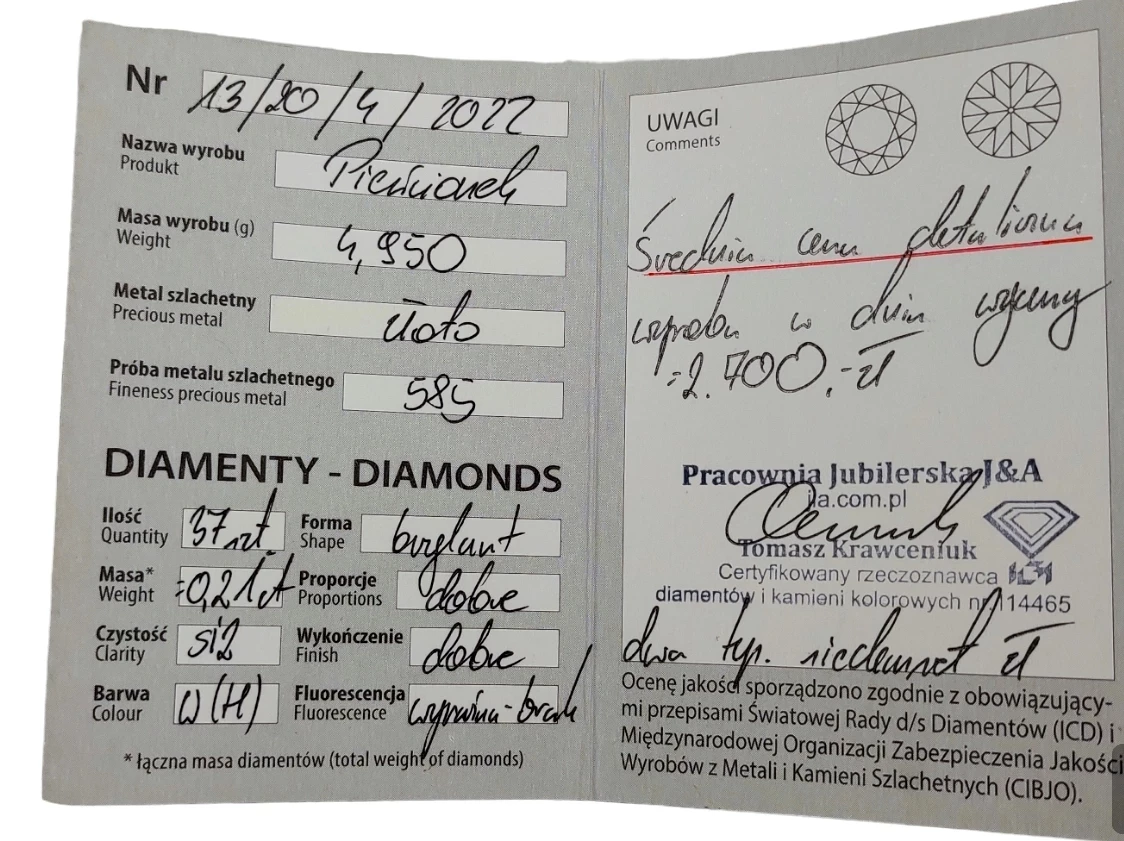 Nr 13/20/4/2022
Nazwa wyrobu
Produkt
Pierścionek
Masa wyrobu (g)
Weight
4,950
Metal szlachetny
Precious metal
złoto
Próba metalu szlachetnego
Fineness precious metal
585
DIAMENTY - DIAMONDS
Ilość
Quantity
37 szt.
Forma
Shape
brylant
Masa*
Weight
=0,21ct
Proporcje
Proportions
dobre
Czystość
Clarity
si2
Wykończenie
Finish
dobre
Barwa
Colour
W(H)
Fluorescencja
Fluorescence
wyrywna-brak
* łączna masa diamentów (total weight of diamonds)
UWAGI
Comments
Średnia cena detaliczna
wyrobu w dniu wyceny
=2.700.-zł
Pracownia Jubilerska J&A
ja.com.pl
Tomasz Krawceniuk
Certyfikowany rzeczoznawca
diamentów i kamieni kolorowych nr 114465
dwa tys. siedemset zł
Ocenę jakości sporządzono zgodnie z obowiązujący-
mi przepisami Światowej Rady d/s Diamentów (ICD) i
Międzynarodowej Organizacji Zabezpieczenia Jakości
Wyrobów z Metali i Kamieni Szlachetnych (CIBJO).